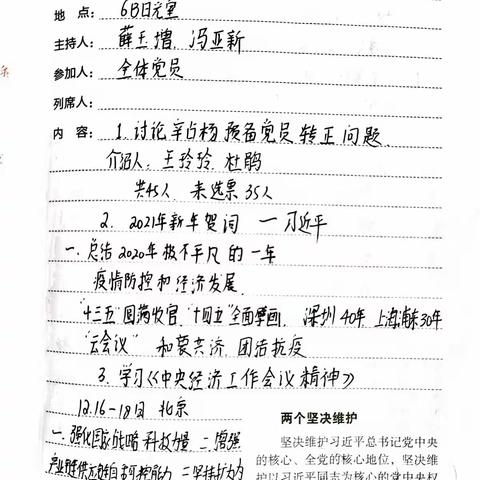 地 点： 6B日元室
主持人： 薛玉增、冯亚新
参加人： 全体党员
列席人：
内 容： 1. 讨论辛占杨预备党员转正问题.
介绍人：王玲玲 杜鹃
共45人 来选票35人
2. 2021年新年贺词 — 习近平
一. 总结2020年极不平凡的一年
疫情防控和经济发展.
"十三五"圆满收官 "十四五"全面擘画. 深圳40年 上海浦东30年
"云会议" 和衷共济 团结抗疫
3. 学习《中央经济工作会议精神》
12.16-18日 北京
一. 强化国家战略科技力量 二. 增强
产业链供应链自主可控能力 三. 坚持扩大内
两个坚决维护
坚决维护习近平总书记党中央
的核心、全党的核心地位，坚决维
护以习近平同志为核心的党中央权